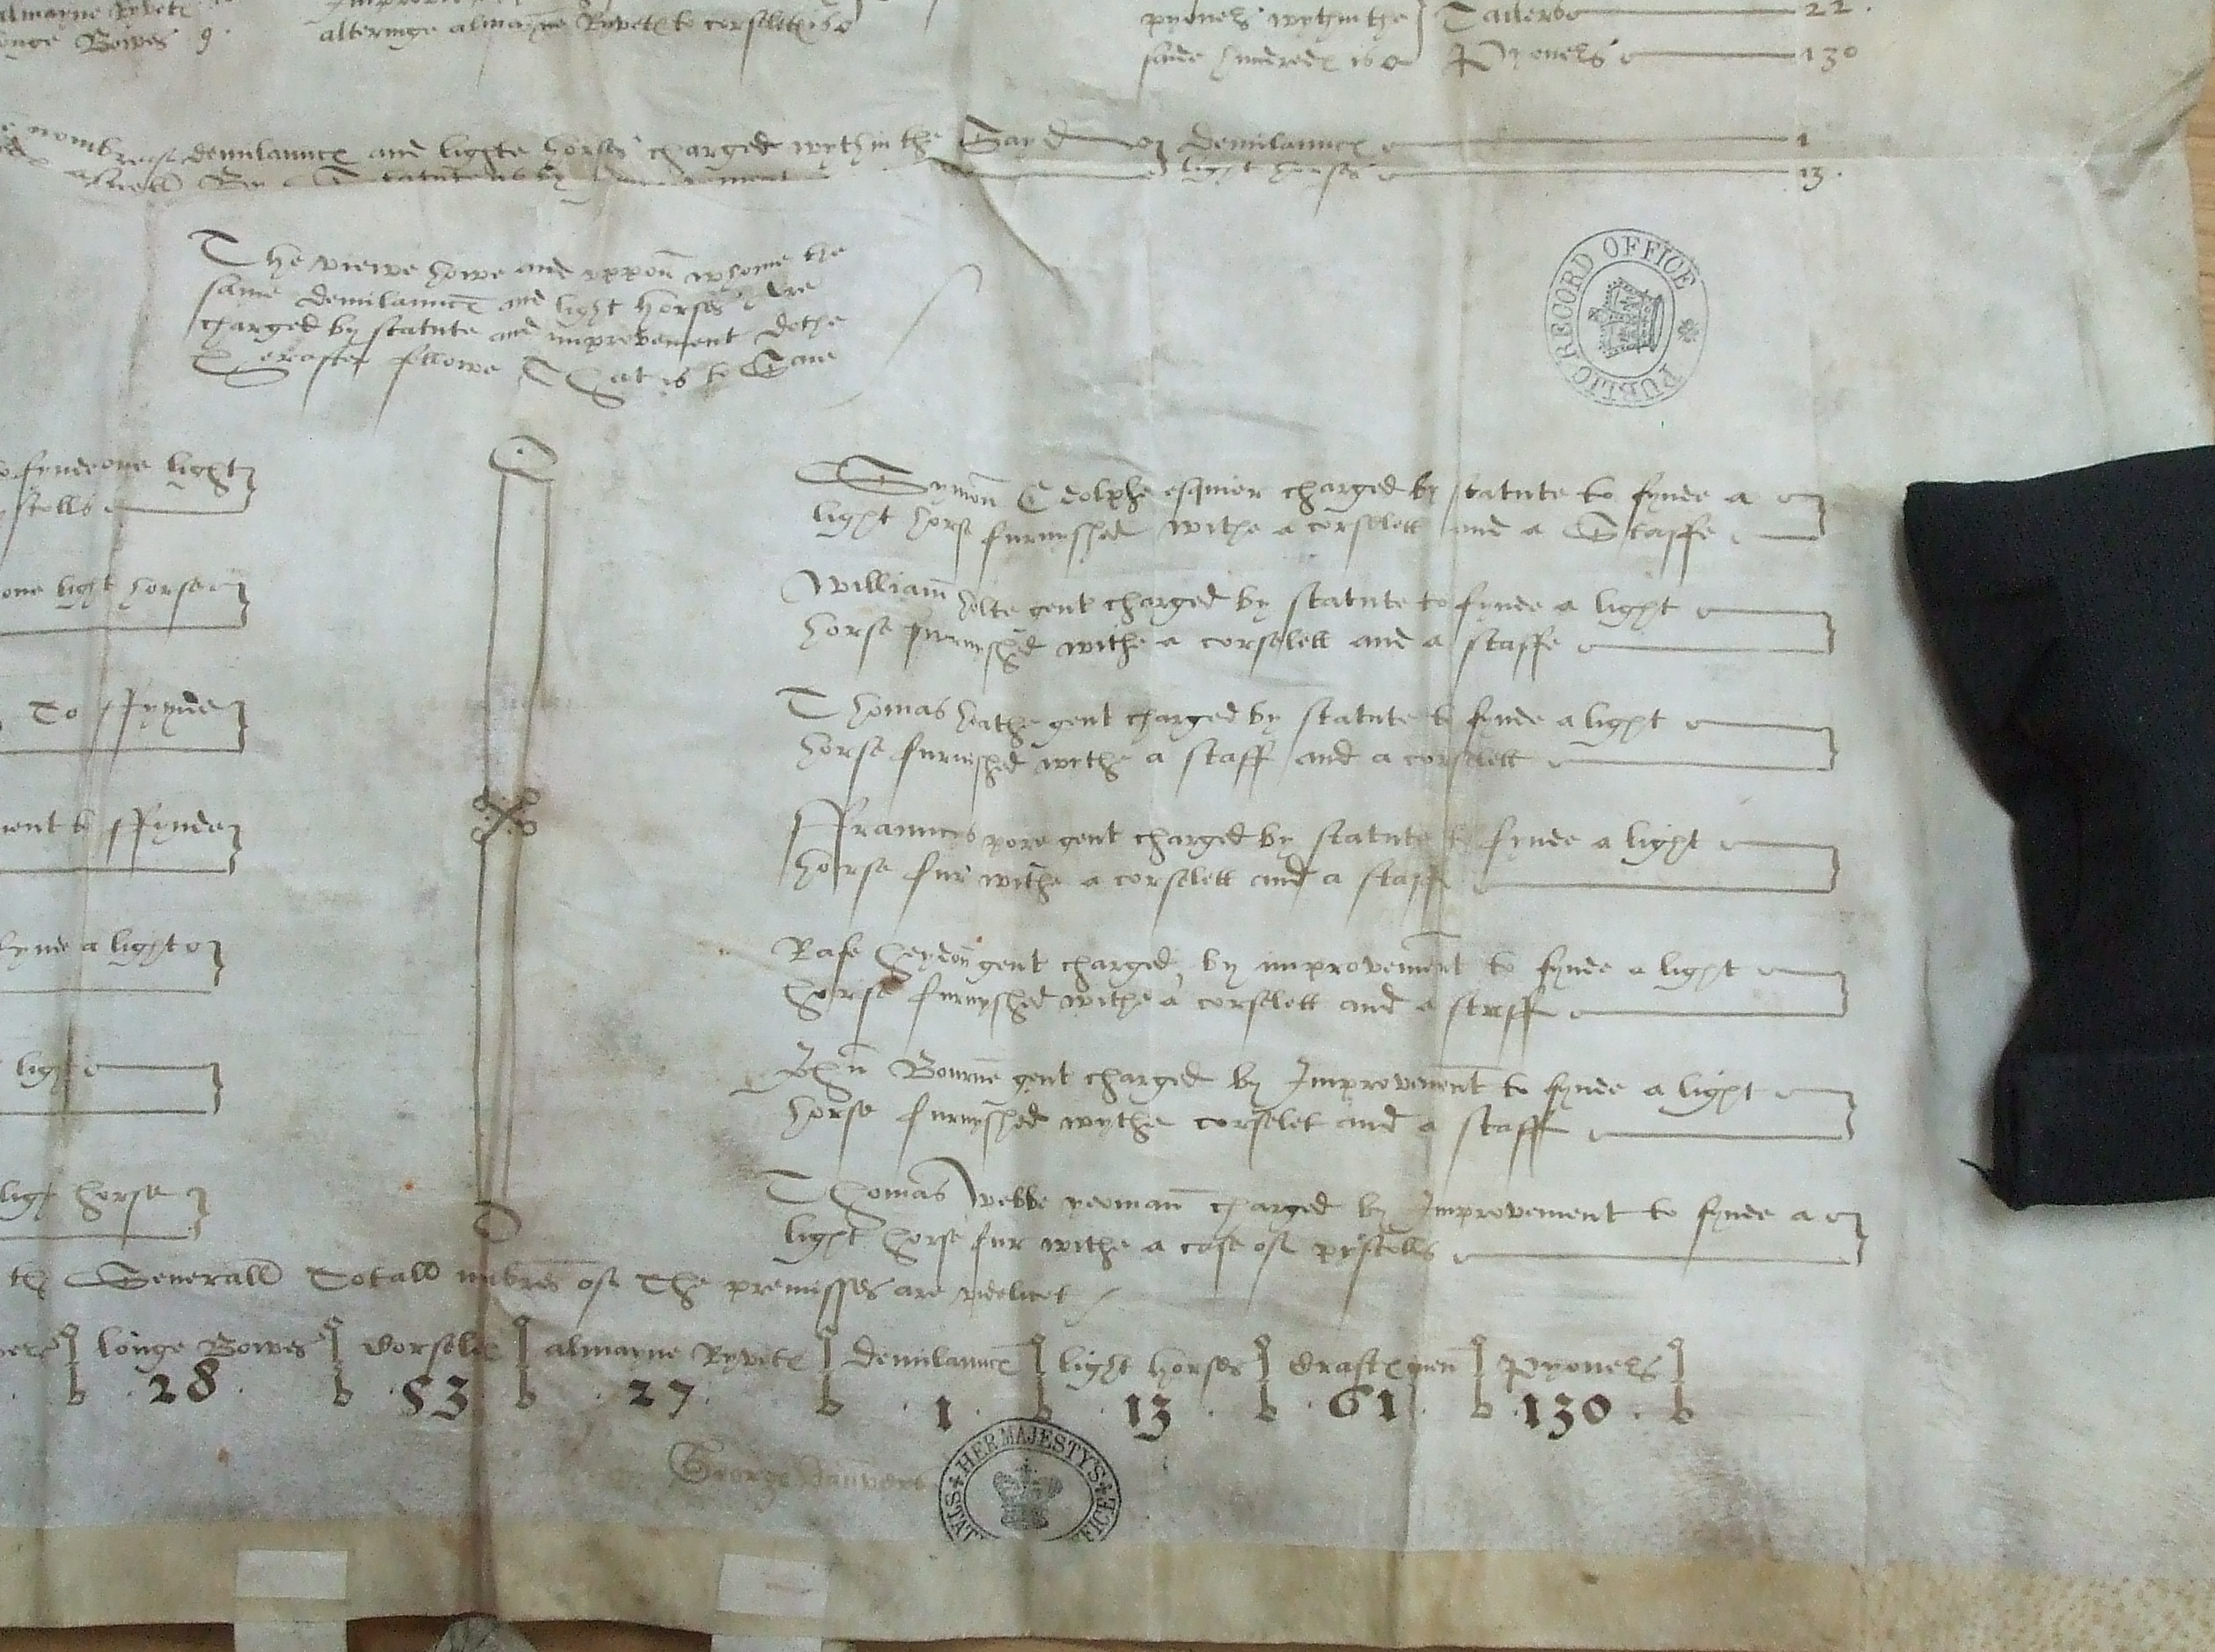 almayne Ryvett
longe Bowes 9.
alteringe almayne Ryvett to corselett is o
pyoners wythin the
saide hundred is o
22.
Pyoners 130
demilaunce and lighte horses charged wythin the Sayd
demilaunce 1
light horses 13.
The viewe howe and uppon whome the
same demilaunce and light horses Are
charged by statute and improvement dothe
Hereafter followe That is to Saie
fynde one light
pystolls
one light horse
To ffynde
ment to ffynde
fynde a light
light
light horse
Symon Edolphe esquier charged by statute to fynde a
light horse furnyshed withe a corselett and a Staffe
William holte gent charged by statute to fynde a light
horse furnyshed withe a corselett and a staffe
Thomas heathe gent charged by statute to fynde a light
horse furnished withe a staff and a corselett
Ffrauncis yore gent charged by statute to fynde a light
horse fur withe a corselett and a staff
Rafe heydon gent charged by improvement to fynde a light
horse furnyshed withe a corselett and a staff
Jhn Bourne gent charged by Improvement to fynde a light
horse furnyshed wythe corselet and a staff
Thomas Webbe yeoman charged by Improvement to fynde a
light horse fur withe a case of pystolls
the Generall Totall nubres of The premisses are videlicet
longe Bowes corselett almayne Ryvett demilaunce light horses craftesmen Pyoners
28 53 27 1 13 61 130
George
PUBLIC RECORD OFFICE
HER MAJESTY'S